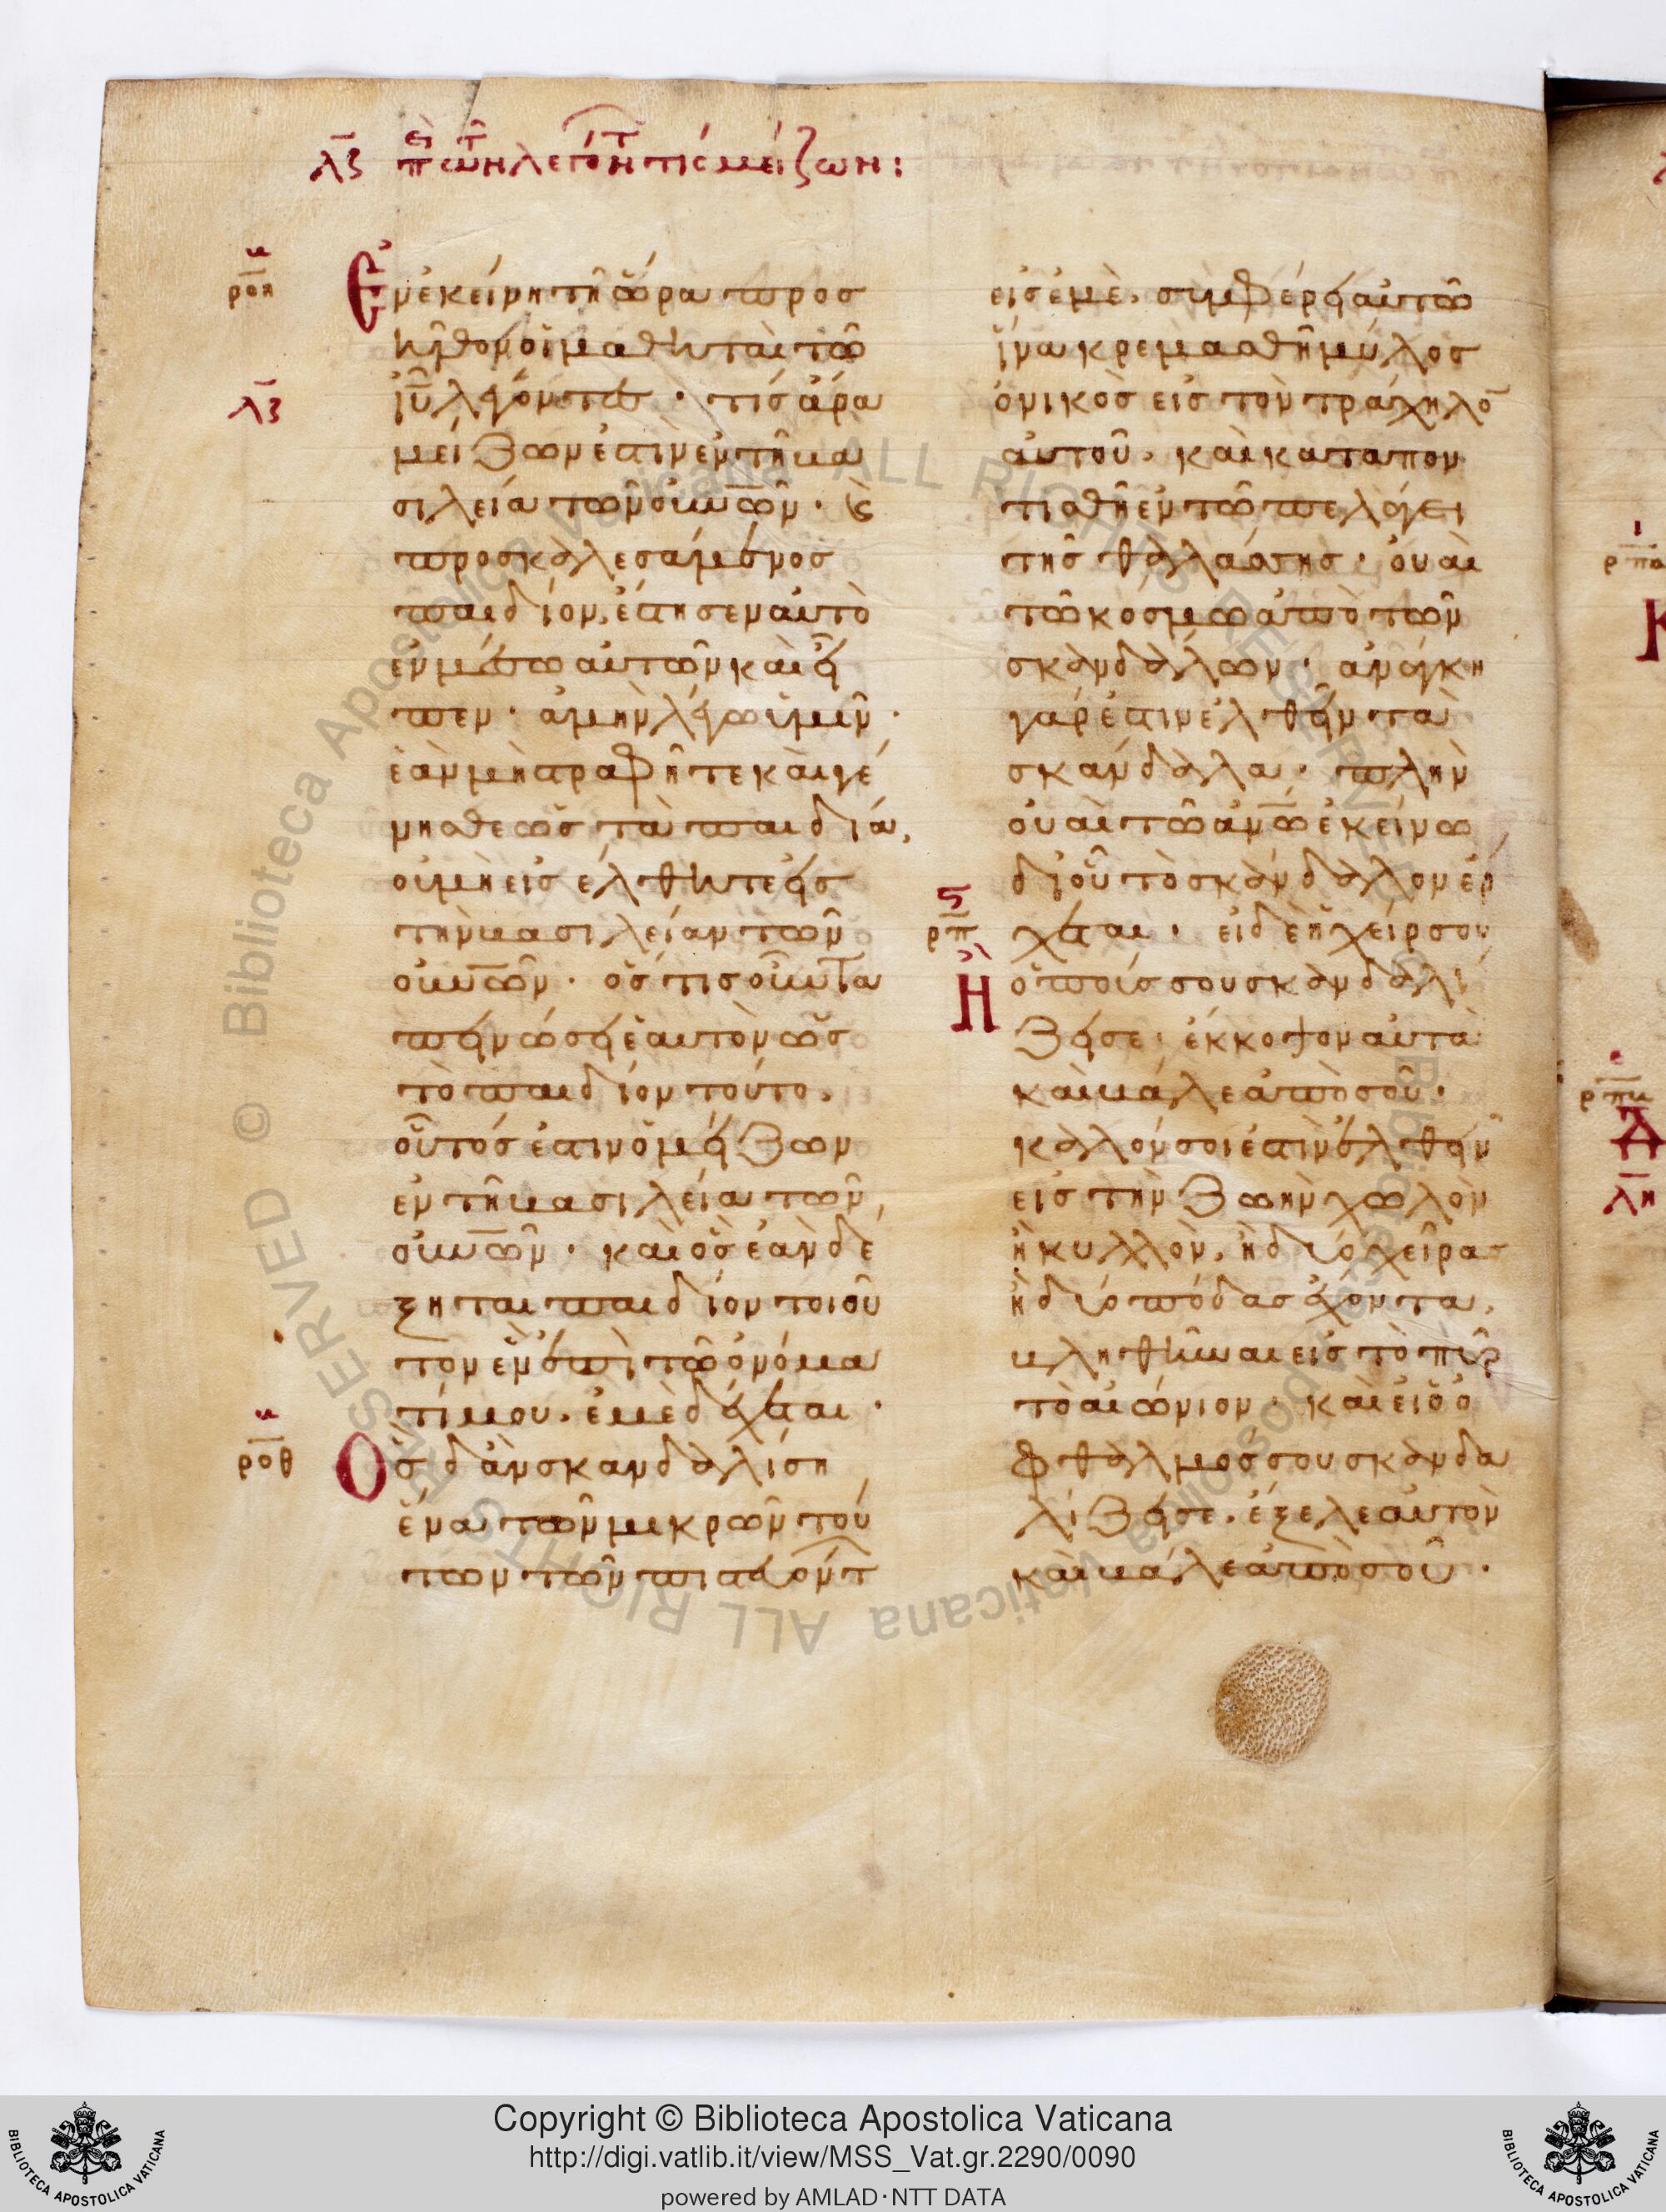 λζ περὶ τῶν λεγόντων τίς μείζων:
Ἐν ἐκείνη τῆ ὥρα προσ
ῆλθον οἱ μαθηταὶ τῶ
ἰῦ λέγοντες · τίς ἄρα
μείζων ἐστὶν ἐν τῆ βα
σιλεία τῶν οὐνῶν · καὶ
προσκαλεσάμενος
παιδίον, ἔστησεν αὐτὸ
ἐν μέσω αὐτῶν καὶ εἶ
πεν · ἀμὴν λέγω ὑμῖν ·
ἐὰν μὴ στραφῆτε καὶ γέ
νησθε ὡς τὰ παιδία,
οὐ μὴ εἰσέλθητε εἰς
τὴν βασιλείαν τῶν
οὐνῶν · ὅστις οὖν τα
πεινώσει ἑαυτὸν ὡς
τὸ παιδίον τοῦτο,
οὗτός ἐστιν ὁ μείζων
ἐν τῆ βασιλεία τῶν
οὐνῶν · καὶ ὃς ἐὰν δέ
ξηται παιδίον τοιοῦ
τον ἓν ἐπὶ τῶ ὀνόμα
τί μου, ἐμὲ δέχεται ·
Ὃς δ' ἂν σκανδαλίση
ἕνα τῶν μικρῶν τού
των τῶν πιστευόντ
εἰς ἐμὲ, συμφέρει αὐτῶ
ἵνα κρεμασθῆ μύλος
ὀνικὸς εἰς τὸν τράχηλο
αὐτοῦ, καὶ καταπον
τισθῆ ἐν τῶ πελάγει
τῆς θαλάσσης · οὐαὶ
τῶ κόσμω ἀπὸ τῶν
σκανδάλων · ἀνάγκη
γάρ ἐστιν ἐλθεῖν τὰ
σκάνδαλα · πλὴν
οὐαὶ τῶ ἀνῶ ἐκείνω
δι' οὗ τὸ σκάνδαλον ἔρ
χεται · εἰ δὲ ἡ χείρ σου
Ἢ ὁ ποῦς σου σκανδαλί
ζει σε, ἔκκοψον αὐτὰ
καὶ βάλε ἀπὸ σοῦ ·
καλόν σοι ἐστὶν ἐλθεῖν
εἰς τὴν ζωὴν χωλὸν
ἢ κυλλὸν, ἢ δύο χεῖρας
ἢ δύο πόδας ἔχοντα,
βληθῆναι εἰς τὸ πῦρ
τὸ αἰώνιον · καὶ εἰ ὁ ὀ
φθαλμός σου σκανδα
λίζει σε, ἔξελε αὐτὸν
καὶ βάλε ἀπὸ σοῦ ·
ροη
β
λζ
ροθ
β
ρπ
ϛ
© Biblioteca Apostolica Vaticana ALL RIGHTS RESERVED
Copyright © Biblioteca Apostolica Vaticana
http://digi.vatlib.it/view/MSS_Vat.gr.2290/0090
powered by AMLAD·NTT DATA
BIBLIOTECA APOSTOLICA VATICANA
BIBLIOTECA APOSTOLICA VATICANA